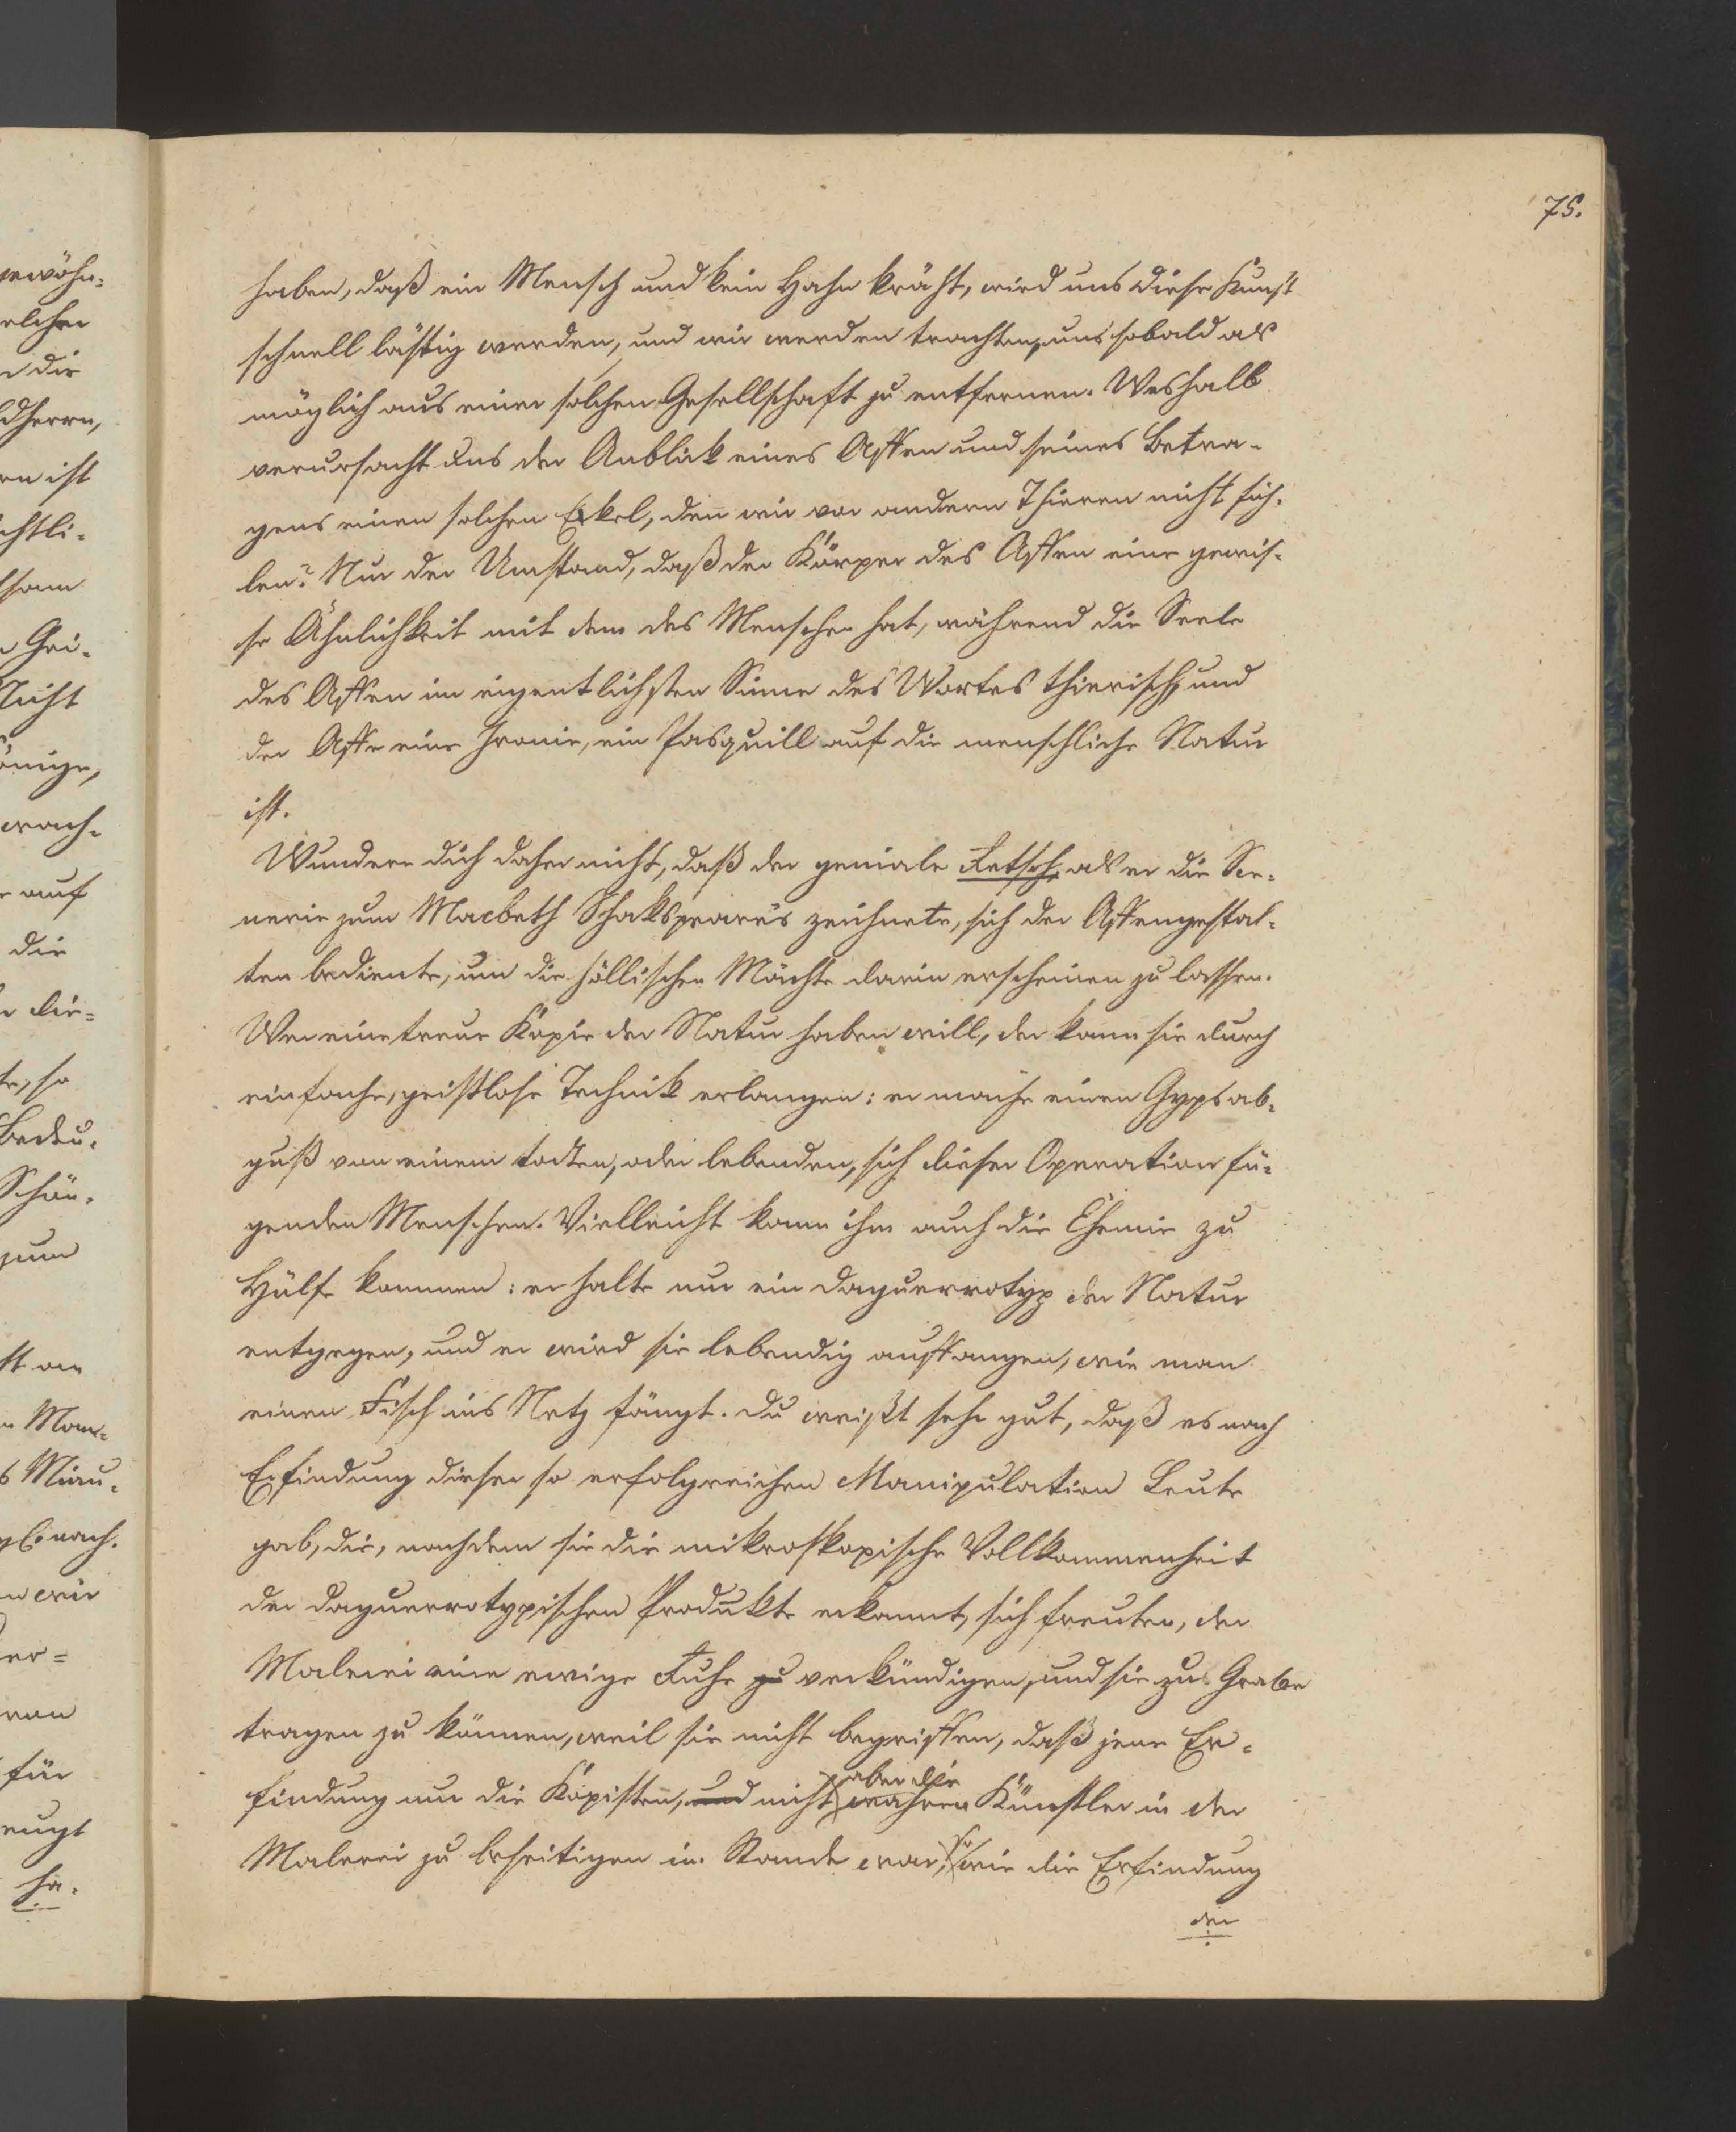 75.
haben, daß ein Mensch und kein Hahn kräht, wird uns diese Kunst
schnell lästig werden, und wir werden trachten, uns sobald als
möglich aus einer solchen Gesellschaft zu entfernen. Weshalb
verursacht uns der Anblick eines Affen und seines Betra-
gens einen solchen Eckel, den wir vor andern Thieren nicht füh-
len? Nur der Umstand, daß der Körper des Affen eine gewis-
se Ähnlichkeit mit dem des Menschen hat, während die Seele
des Affen im eigentlichsten Sinne des Wortes thierisch, und
der Affe eine Ironie, ein Pasquill auf die menschliche Natur
ist.
Wundere dich daher nicht, daß der geniale Retsch, als er die Sce-
nerie zum Macbeth Schakspeare's zeichnete, sich der Affengestal-
ten bediente, um die höllischen Mächte darin erscheinen zu lassen.
Wer eine treue Kopie der Natur haben will, der kann sie durch
einfache, geistlose Technik erlangen: er mache einen Gypsab-
guß von einem todten, oder lebenden, sich dieser Operation fü-
genden Menschen. Vielleicht kann ihm auch die Chemie zu
Hülfe kommen: er halte nur ein Daguerrotyp der Natur
entgegen, und er wird sie lebendig auffangen, wie man
einen Fisch ins Netz fängt. Du weißt sehr gut, daß es nach
Erfindung dieser so erfolgreichen Manipulation Leute
gab, die, nachdem sie die mikroskopische Vollkommenheit
der daguerrotypischen Produkte erkannt, sich freuten, der
Malerei eine ewige Ruhe zu verkündigen, und sie zu Grabe
tragen zu können, weil sie nicht begriffen, daß jene Er-
findung nur die Kopisten, und nicht aber die wahren Künstler in der
Malerei zu beseitigen im Stande war, so wie die Erfindung
der